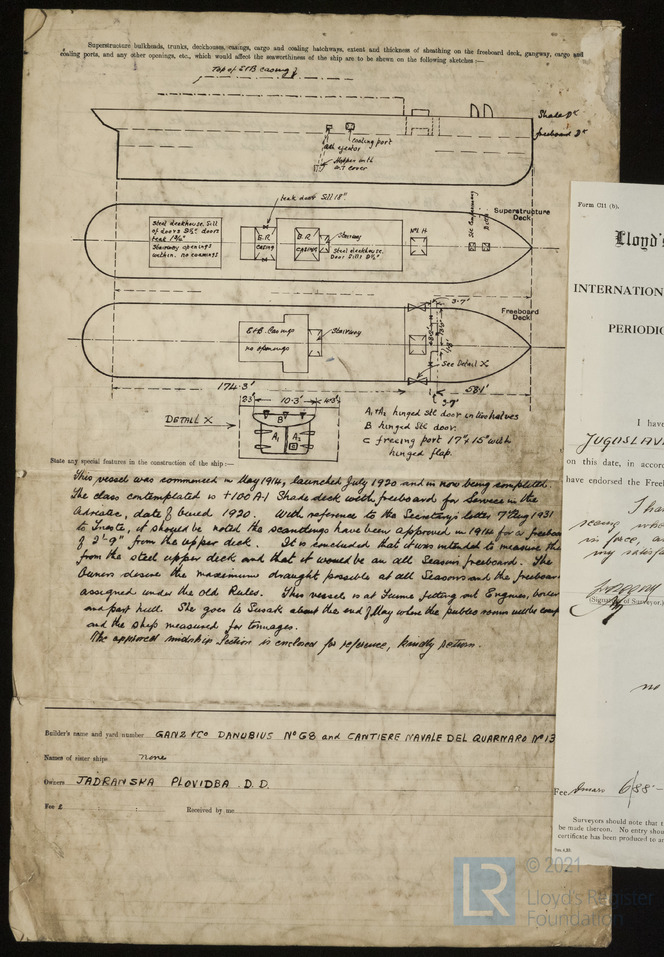 Superstructure bulkheads, trunks, deckhouses, casings, cargo and coaling hatchways, extent and thickness of sheathing on the freeboard deck, gangway, cargo and
coaling ports, and any other openings, etc., which would affect the seaworthiness of the ship are to be shown on the following sketches :—
Top of E&B Casing
Shade Dk
freeboard Dk
Coaling port
ash ejector
Hopper with
W.T cover
teak door Sill 18"
Superstructure
Deck
Steel deckhouse. Sill
of doors 2½" doors
teak 1¾"
Stairway openings
within. no coamings
B.R
Casing
E.R
Casing
Stairway
Steel deckhouse.
Door Sills 2½"
No 1 H
Freeboard
Deck
3.7'
E+B. Casings
no openings
Stairway
See Detail X
174.3'
58.1'
3.7'
2.3'
10.3'
4.3'
DETAIL X
B
A1
A2
A1+A2 hinged Stl door in two halves
B hinged Stl door.
C freeing port 17" x 15" with
hinged flap.
State any special features in the construction of the ship :—
This vessel was commenced in May 1914, launched July 1920 and is now being completed.
The class contemplated is +100A1 Shade deck with freeboard for Service in the
Adriatic, date of build 1920. With reference to the Secretary's letter 7th Aug 1931
to Trieste, it should be noted the scantlings have been approved in 1914 for a freeboa
of 2'-9" from the upper deck. It is concluded that it was intended to measure th
from the steel upper deck and that it would be an all Seasons freeboard. The
Owners desire the maximum draught possible at all Seasons and the freeboar
assigned under the old Rules. This vessel is at Fiume fitting out Engines, boiler
and part hull. She goes to Susak about the end of May where the public rooms will be comp
and the ship measured for tonnages.
The approved midship Section is enclosed for reference, kindly return.
Builder's name and yard number GANZ + Co DANUBIUS No G8 and CANTIERE NAVALE DEL QUARNARO No 13
Names of sister ships none
Owners JADRANSKA PLOVIDBA D.D.
Fee £ : : Received by me
Form C11 (b).
Lloyd's
INTERNATION
PERIODIC
I have
JUGOSLAV
on this date, in accor
have endorsed the Free
I ha
in force, a
my satisfa
(Signature of Surveyor.)
no
Fee Dinars 688 -
Surveyors should note that t
be made thereon. No entry shou
certificate has been produced to an
LR
© 2021
Lloyd's Register
Foundation